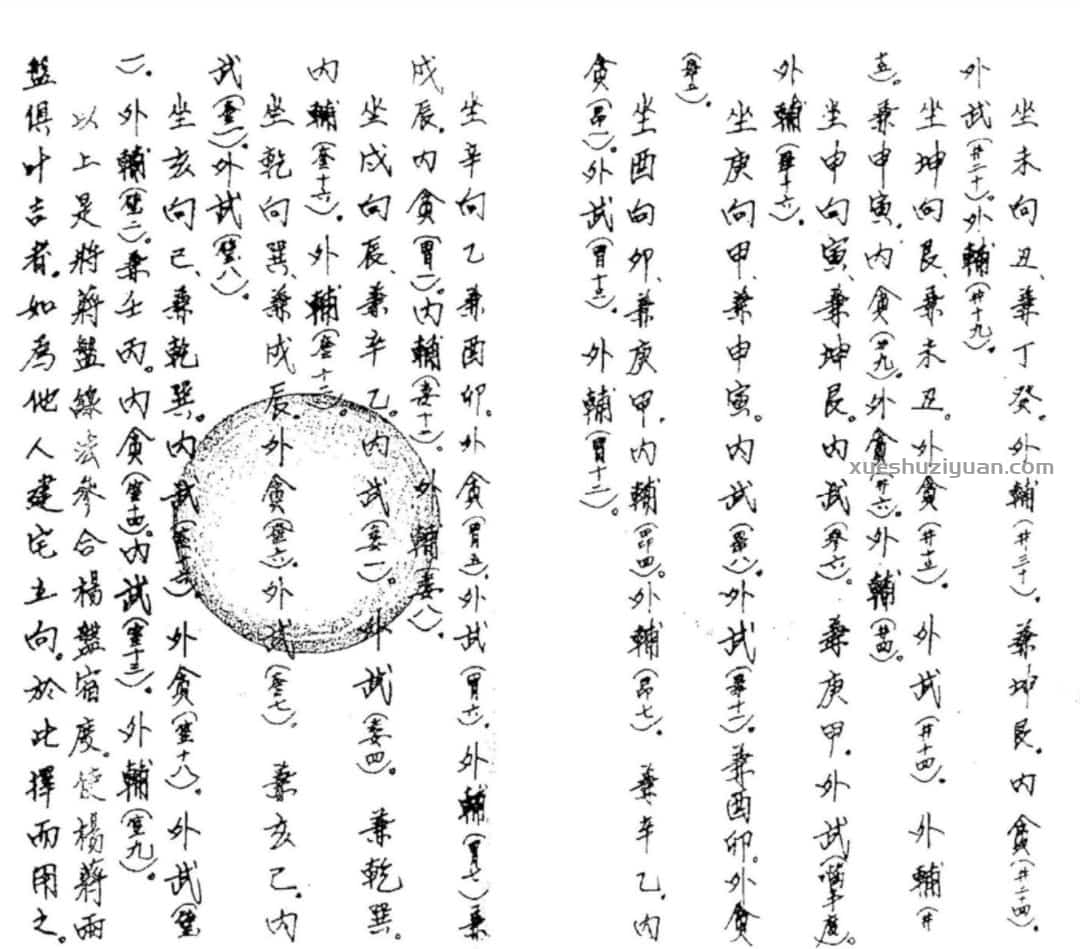 坐未向丑、兼丁癸。外輔(井三十)。兼坤艮。内貪(井二十四)。
外武(井二十)。外輔(井十九)。
坐坤向艮、兼未丑。外貪(井十五)。外武(井十四)。外輔(井
五)。兼申寅。内貪(井九)。外貪(井六)。外輔(井四)。
坐申向寅、兼坤艮。内武(参六)。兼庚甲。外武(觜半度)。
外輔(畢十六)。
坐庚向甲、兼申寅。内武(畢八)。外武(畢十二)。兼酉卯。外貪
(畢五)。
坐酉向卯、兼庚甲。内輔(昴四)。外輔(昴七)。兼辛乙。内
貪(昴一)。外武(胃十三)。外輔(胃十二)。
坐辛向乙兼酉卯。外貪(胃五)、外武(胃六)。外輔(胃七)兼
戌辰。内貪(胃一)。内輔(婁十一)。外輔(婁八)。
坐戌向辰、兼辛乙。内武(婁一)。外武(婁四)。兼乾巽。
内輔(奎十六)。外輔(奎十二)。
坐乾向巽、兼戌辰。外貪(奎六)。外武(奎七)。兼亥己。内
武(奎一)。外武(壁八)。
坐亥向己、兼乾巽。内武(室十六)外貪(室十八)。外武(壁
一)。外輔(壁二)。兼壬丙。内貪(室十四)。内武(室十三)。外輔(室九)。
以上是將蔣盤線法參合楊盤宿度。使楊蔣兩
盤俱叶吉者。如為他人建宅立向。於此擇而用之。
xueshuziyuan.com